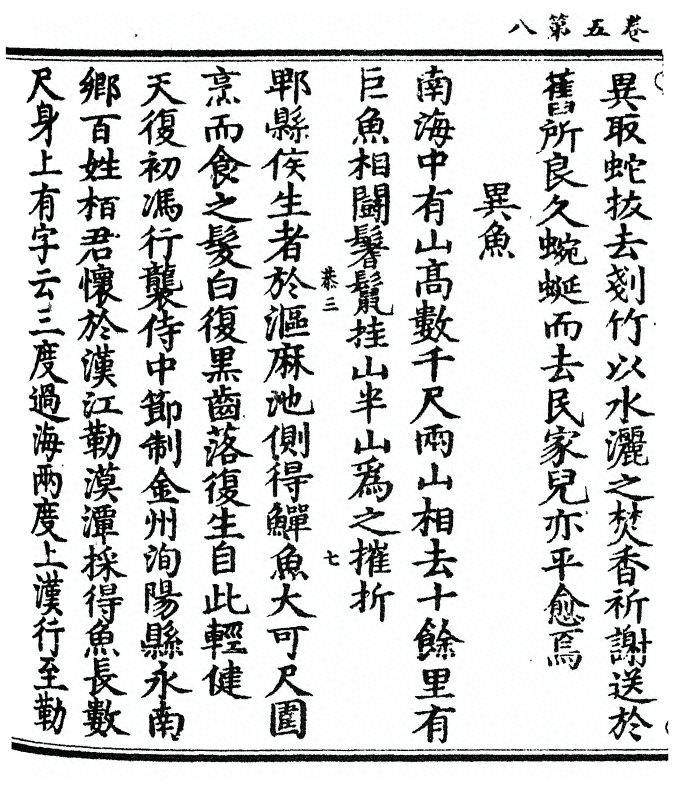 卷五第八
異取蛇拔去剗竹以水灑之焚香祈謝送於
舊所良久蜿蜒而去民家兒亦平愈焉
異魚
南海中有山高數千尺兩山相去十餘里有
巨魚相鬬鬐鬣挂山半山爲之摧折
恭三
七
郫縣侯生者於漚麻池側得鱓魚大可尺圍
烹而食之髮白復黑齒落復生自此輕健
天復初馮行襲侍中節制金州洵陽縣永南
鄉百姓栢君懷於漢江勒漠潭採得魚長數
尺身上有字云三度過海兩度上漢行至勒